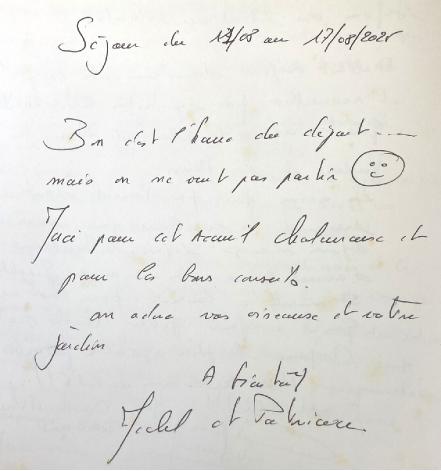 Séjour du 14/08 au 17/08/2025
Bon c'est l'heure du départ.....
mais on ne veut pas partir
Merci pour cet accueil chaleureux et
pour les bons conseils.
on adore vos oiseaux et votre
jardin
A bientôt
et Patricia